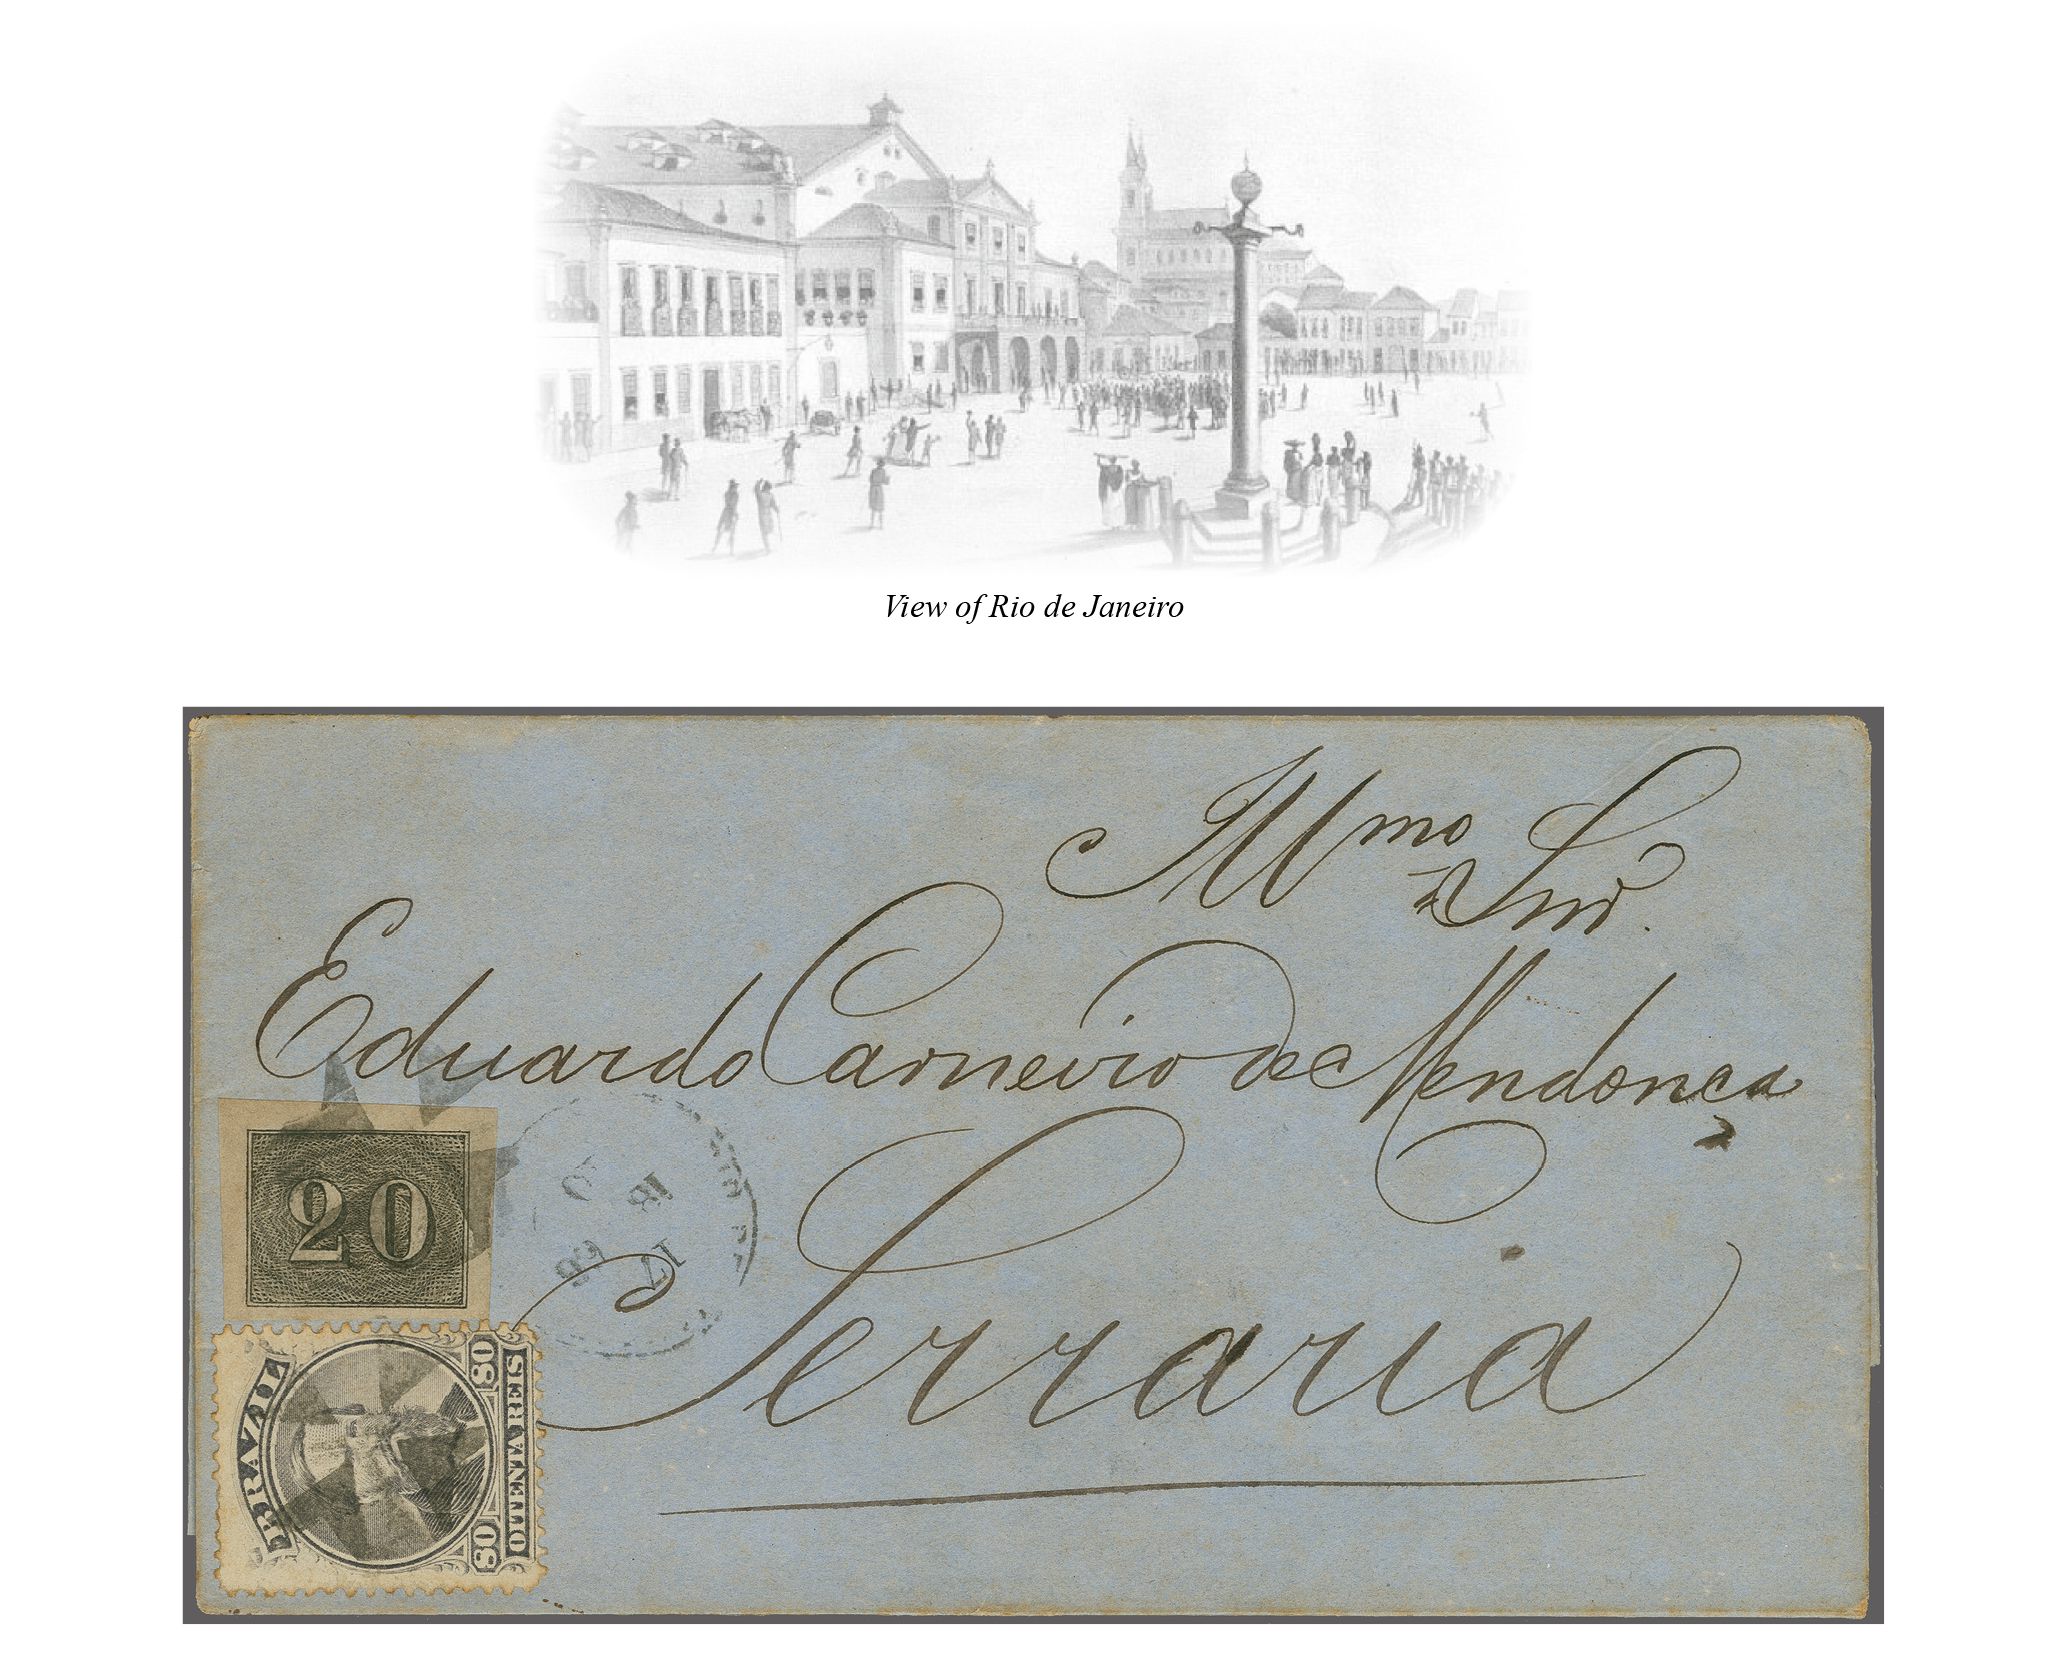 View of Rio de Janeiro
Illmo Snr.
Eduardo Carneiro de Mendonça
Serraria
20
18
17
BRAZIL
80
80
SERVNELLO